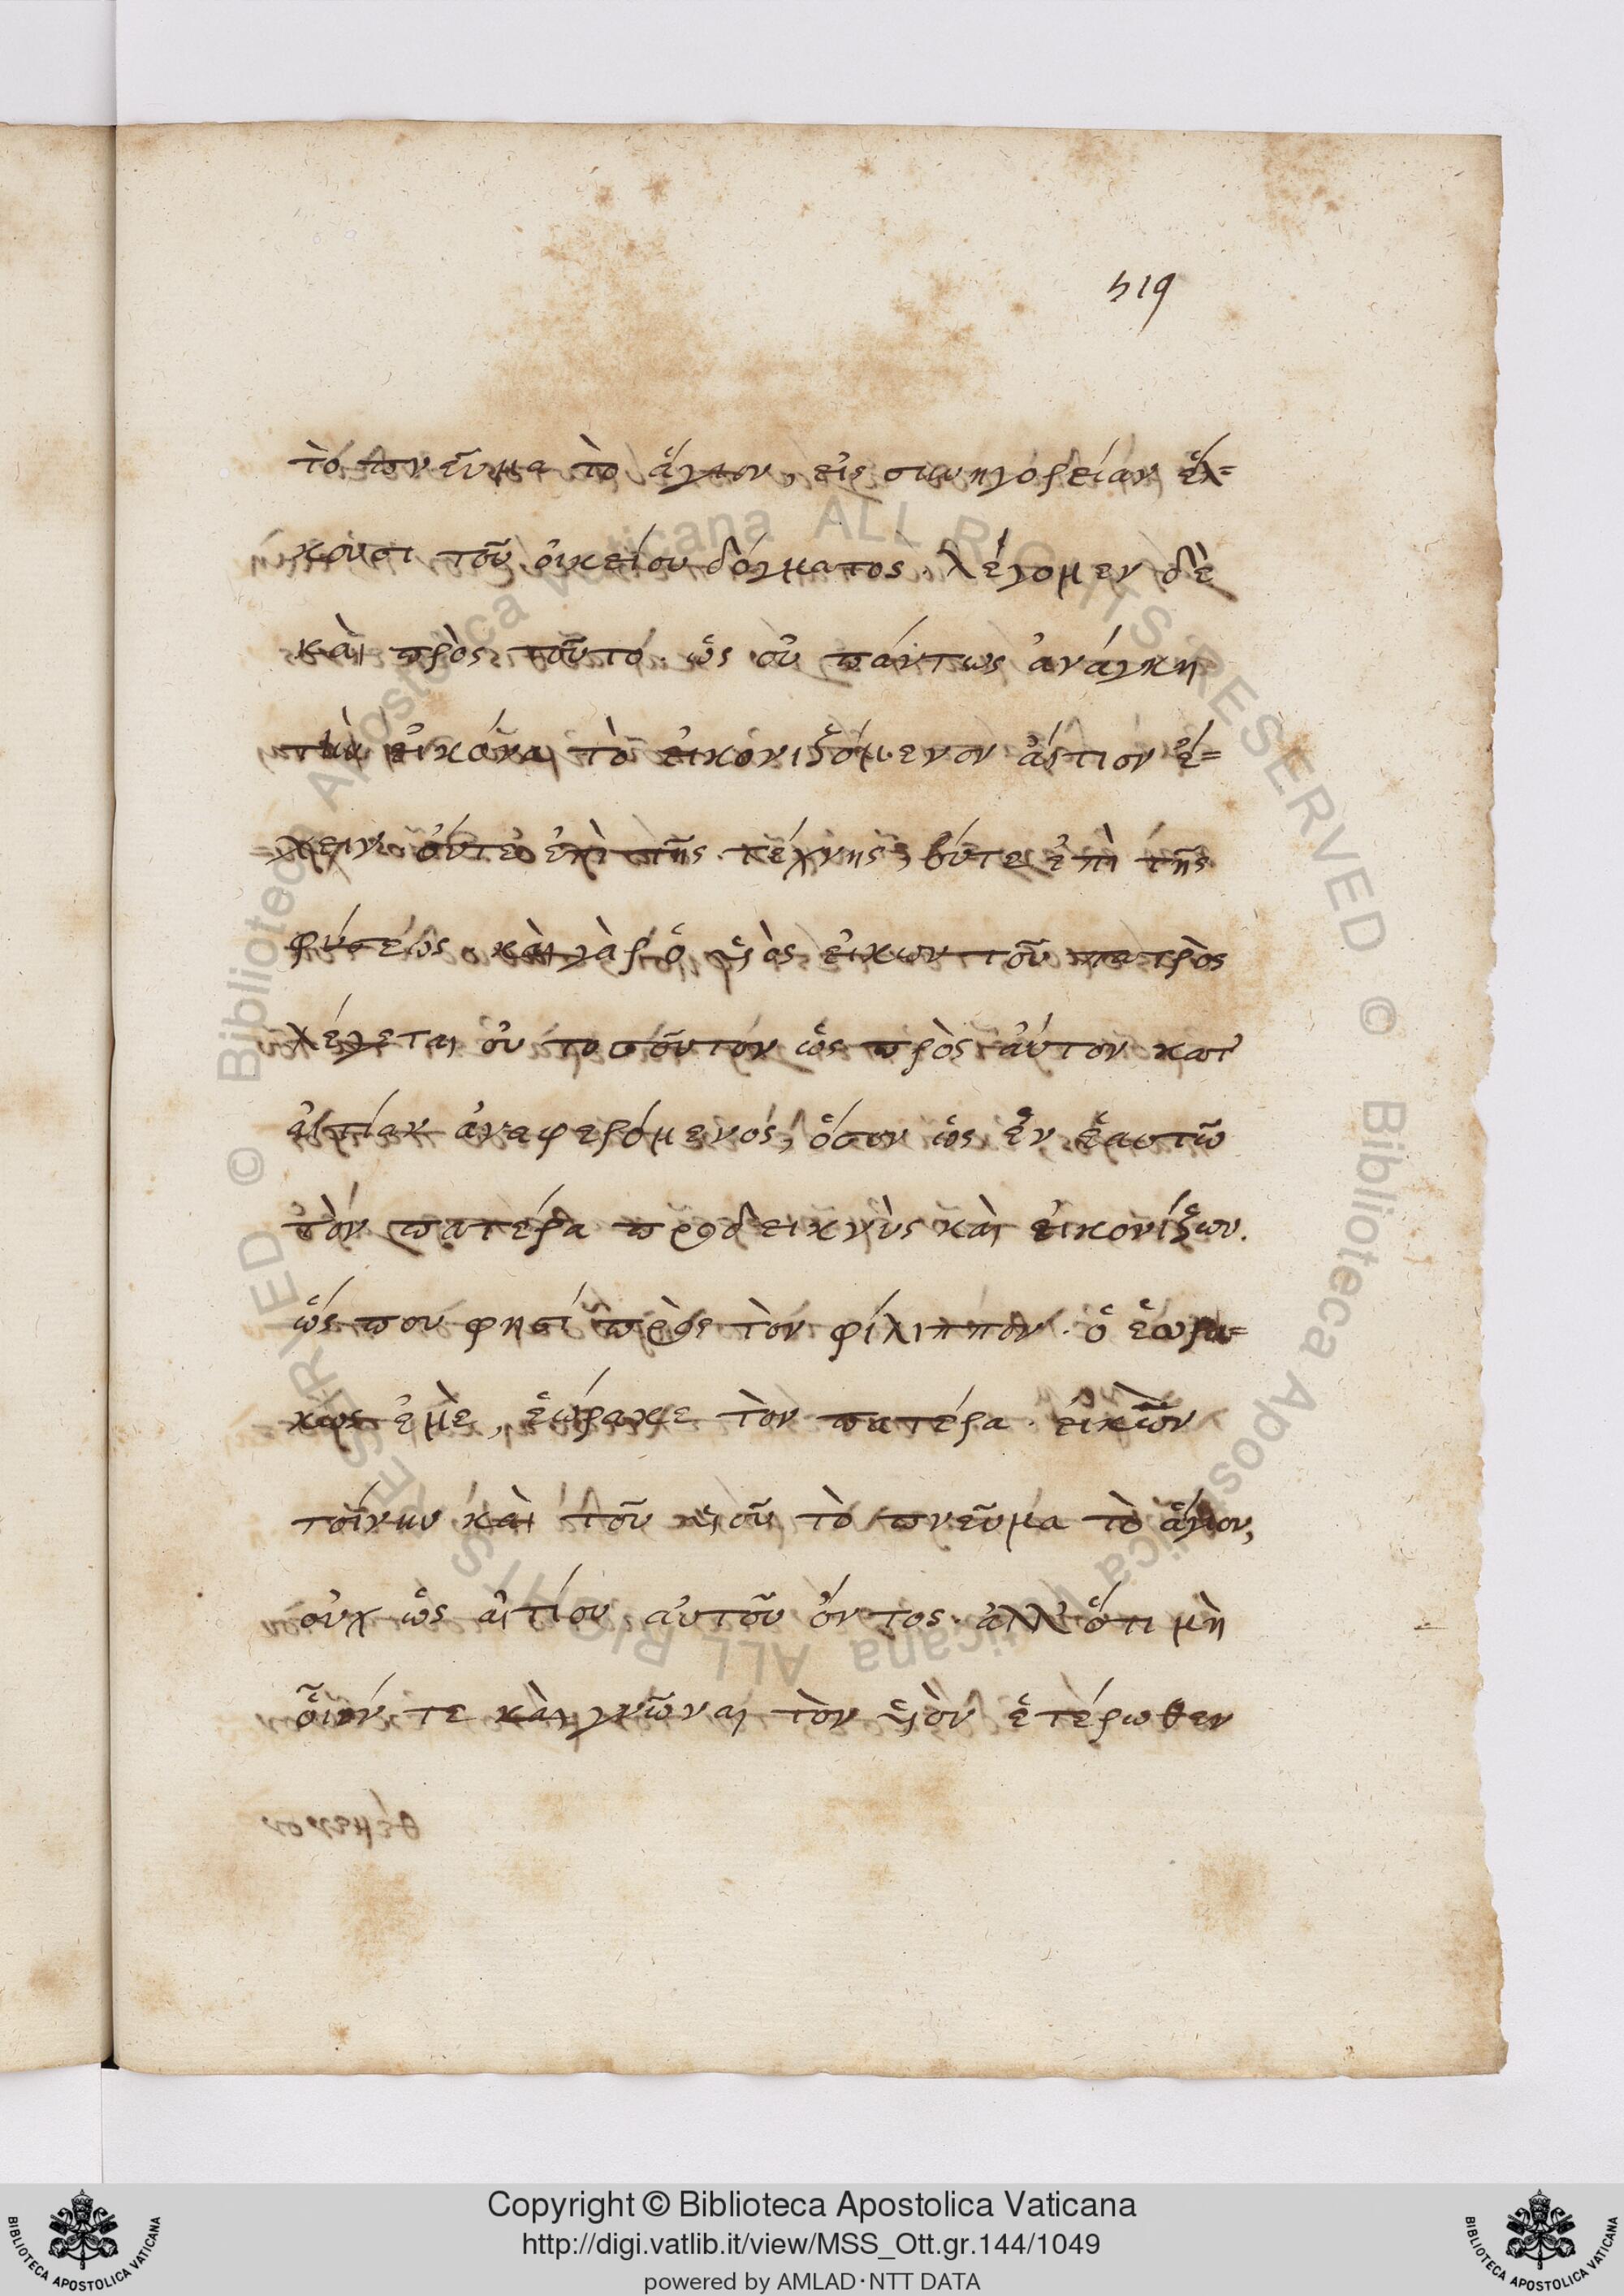 519
τὸ πνεῦμα τὸ ἅγιον, εἰς συνηγορείαν ἕλ=
κουσι τοῦ οἰκείου δόγματος. λέγομεν δὲ
καὶ πρὸς τοῦτο. ὡς οὐ πάντως ἀνάγκη
τὴν εἰκόνα τὸ εἰκονιζόμενον ἄιτιον ἔ=
χειν οὔτε ἐπὶ τῆς τέχνης, οὔτε ἐπὶ τῆς
φύσεως. καὶ γὰρ ὁ υἱὸς εἰκὼν τοῦ πατρὸς
λέγεται οὐ τοσοῦτον ὡς πρὸς αὐτὸν κατ'
αἰτίαν ἀναφερόμενος, ὅσον ὡς ἐν ἑαυτῶ
τὸν πατέρα προδεικνὺς καὶ εἰκονίζων.
ὥς που φησὶ πρὸς τὸν φίλιππον. ὁ ἑωρα=
κὼς ἐμὲ, ἑώρακε τὸν πατέρα. εἰκὼν
τοίνυν καὶ τοῦ υἱοῦ τὸ πνεῦμα τὸ ἅγιον,
οὐχ ὡς αἰτίου αὐτοῦ ὄντος. ἀλλ' ὅτι μὴ
οἷόν τε καὶ γνῶναι τὸν υἱὸν ἑτέρωθεν
Copyright © Biblioteca Apostolica Vaticana
http://digi.vatlib.it/view/MSS_Ott.gr.144/1049
powered by AMLAD·NTT DATA
BIBLIOTECA APOSTOLICA VATICANA
BIBLIOTECA APOSTOLICA VATICANA
© Biblioteca Apostolica Vaticana ALL RIGHTS RESERVED © Biblioteca Apostolica Vaticana ALL RIGHTS RESERVED